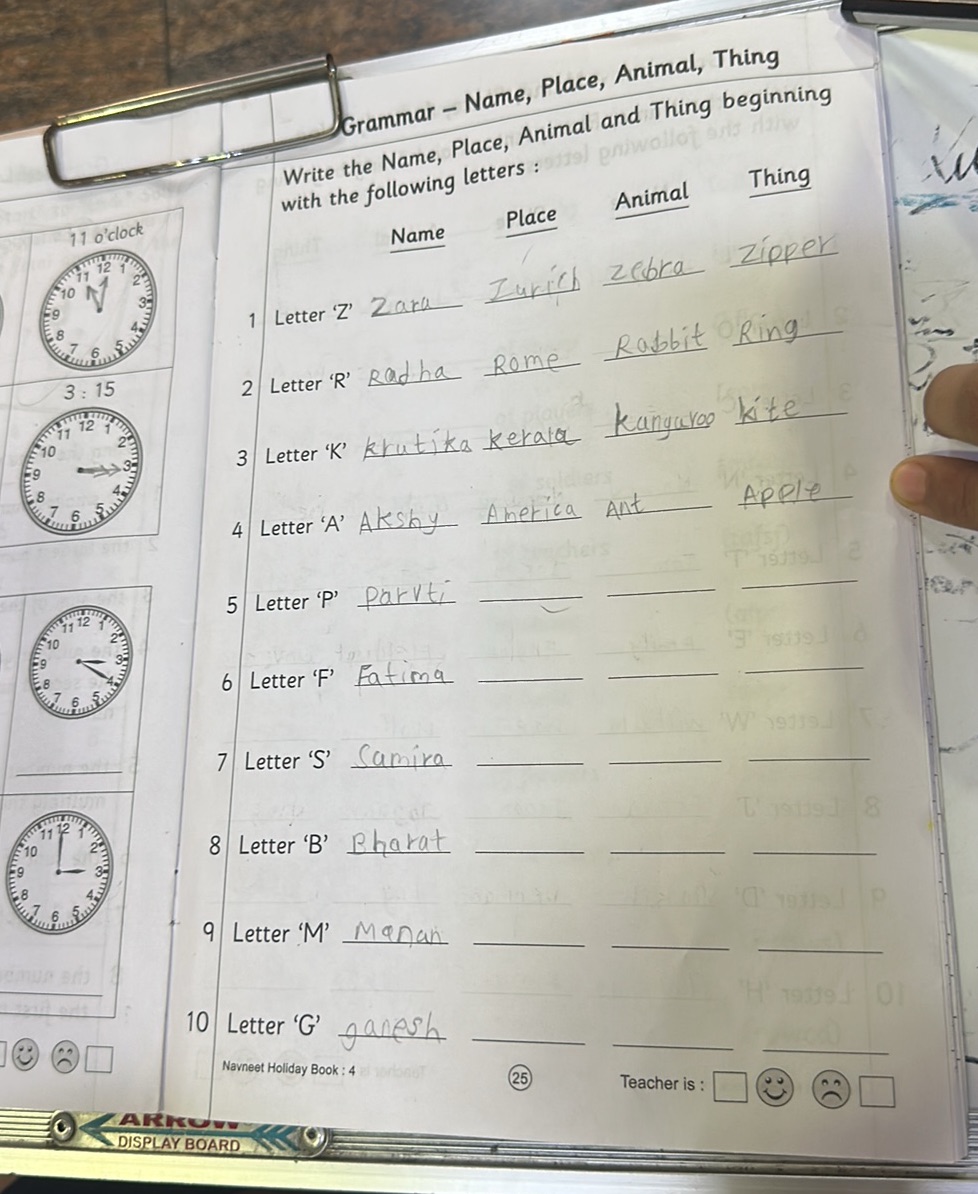 Grammar – Name, Place, Animal, Thing
Write the Name, Place, Animal and Thing beginning
with the following letters :
Name Place Animal Thing
1 Letter ‘Z’ Zara Zurich zebra Zipper
2 Letter ‘R’ Radha Rome Rabbit Ring
3 Letter ‘K’ krutika kerala kangaroo kite
4 Letter ‘A’ Akshy America Ant Apple
5 Letter ‘P’ parvti
6 Letter ‘F’ Fatima
7 Letter ‘S’ Samira
8 Letter ‘B’ Bharat
9 Letter ‘M’ Manan
10 Letter ‘G’ ganesh
Navneet Holiday Book : 4 25 Teacher is :
11 o'clock
12 1 2 3 4 5 6 7 8 9 10 11
3 : 15
12 1 2 3 4 5 6 7 8 9 10 11
12 1 2 3 4 5 6 7 8 9 10 11
12 1 2 3 4 5 6 7 8 9 10 11
ARROW
DISPLAY BOARD